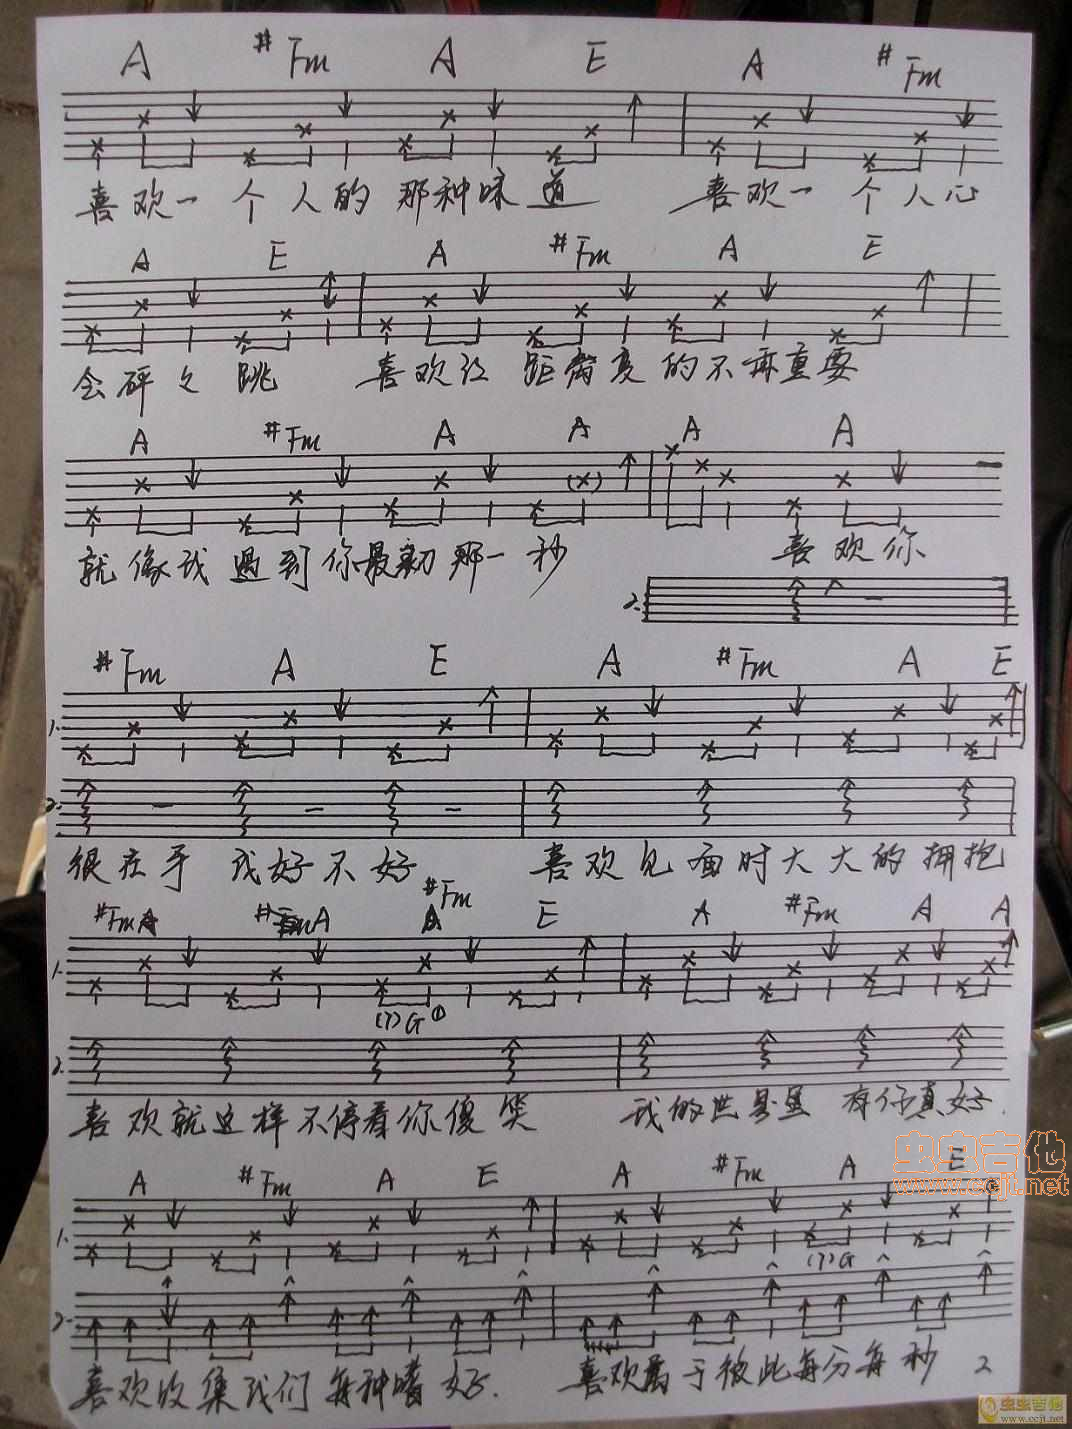 A #Fm A E A #Fm
喜欢一个人的那种味道 喜欢一个人心
A E A #Fm A E
会砰之跳 喜欢让距离变的不再重要
A #Fm A A A A
就像我遇到你最初那一秒 喜欢你
2.
#Fm A E A #Fm A E
1.
2.
很在乎我好不好 喜欢见面时大大的拥抱
#Fm A #Fm E A #Fm A A
1.
(7)G ①
2.
喜欢就这样不停看你傻笑 我的世界里有你真好.
虫虫吉他
www.ccjt.net
A #Fm A E A #Fm A E
1.
(7)G
2.
喜欢收集我们每种嗜好. 喜欢属于彼此每分每秒 2
虫虫吉他
www.ccjt.net